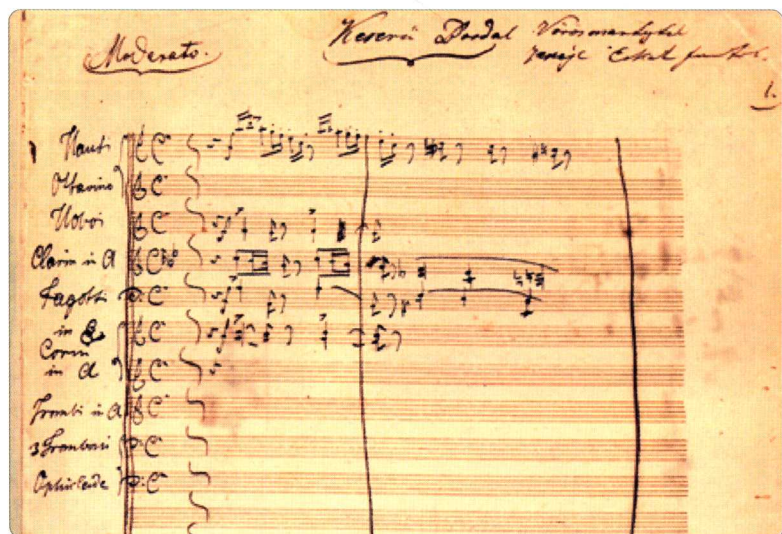 Moderato.
Keserű Pordal Vörösmartytól
zenéje Erkel
1.
Flauti
Ottavino
Oboi
Clarin in A
Fagotti
in E
Corni
in A
Trombi in A
3 Tromboni
Ophicleide